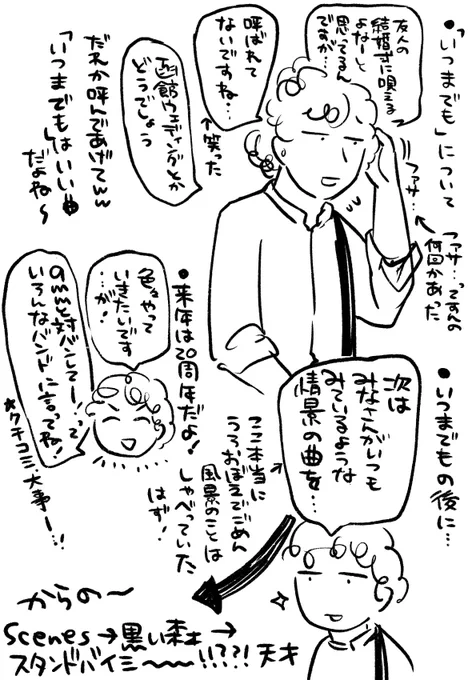 ・「いつまでも」について
友人の
結婚式に唄える
よなーと、
思ってるん
ですが…
呼ばれて
ないですね…
↑笑った
函館ウェディングとか
どうでしょう
だれか呼んであげてww
「いつまでも」はいい曲
だよね〜
ファサ…
ファサ…ってすんの
何回かあった
・いつまでもの後に…
次は
みなさんがいつも
みているような
情景の曲を…
ここ本当に
うろおぼえでごめん
風景のことは
しゃべっていた
はず！
・来年は20周年だよ！
色々やって
いきたいです
…が！
qmmと対バンしてーって
いろんなバンドに言ってね！
*クチコミ大事ー!!
からの〜
Scenes→黒い森→
スタンドバイミー〜〜!!??!天才